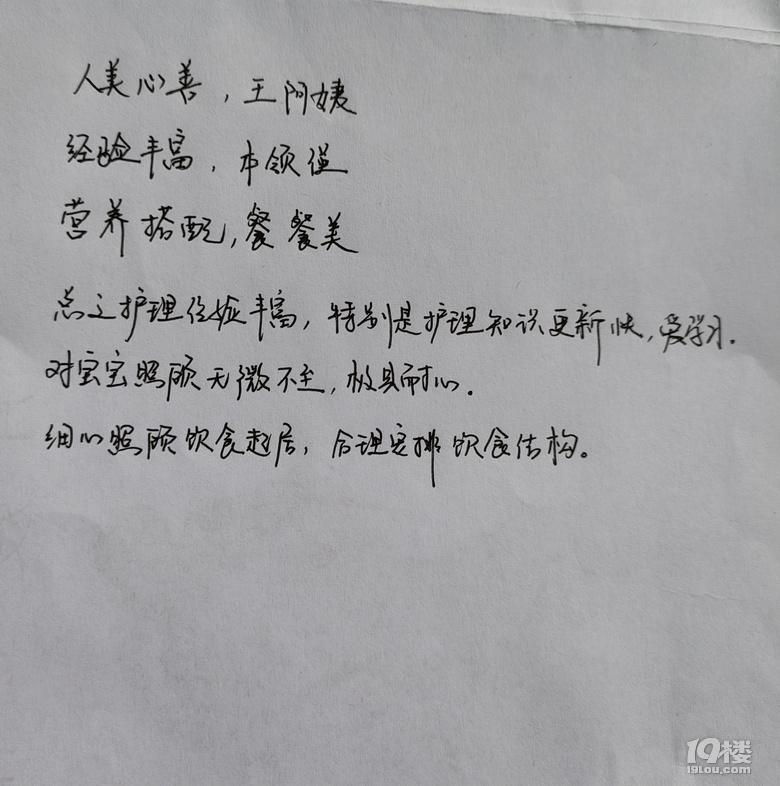 人美心善，王阿姨
经验丰富，本领强
营养搭配，餐餐美
总之护理经验丰富，特别是护理知识更新快，爱学习.
对宝宝照顾无微不至，极具耐心.
细心照顾饮食起居，合理安排饮食结构。
19楼
19lou.com